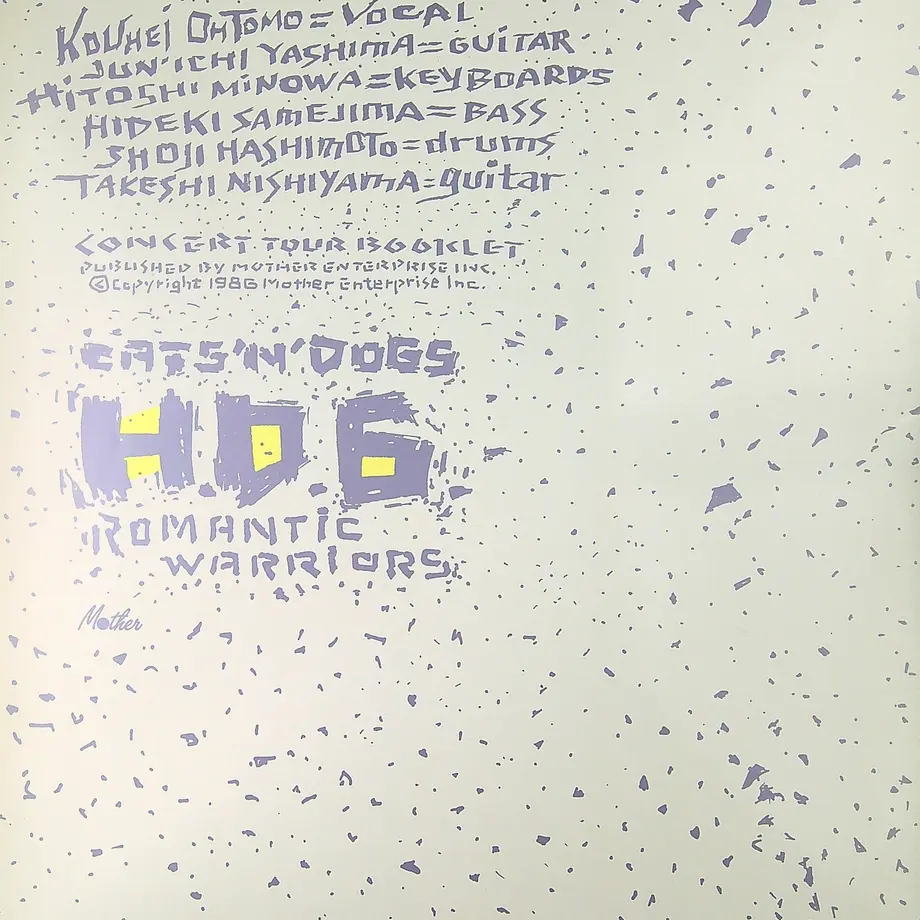 KOUHEI OHTOMO=VOCAL
JUN'ICHI YASHIMA=GUITAR
HITOSHI MINOWA=KEYBOARDS
HIDEKI SAMEJIMA=BASS
SHOJI HASHIMOTO=drums
TAKESHI NISHIYAMA=guitar
CONCERT TOUR BOOKLET
PUBLISHED BY MOTHER ENTERPRISE INC.
©Copyright 1986 Mother Enterprise Inc.
CATS'N'DOGS
HD6
ROMANTIC
WARRIORS
Mother